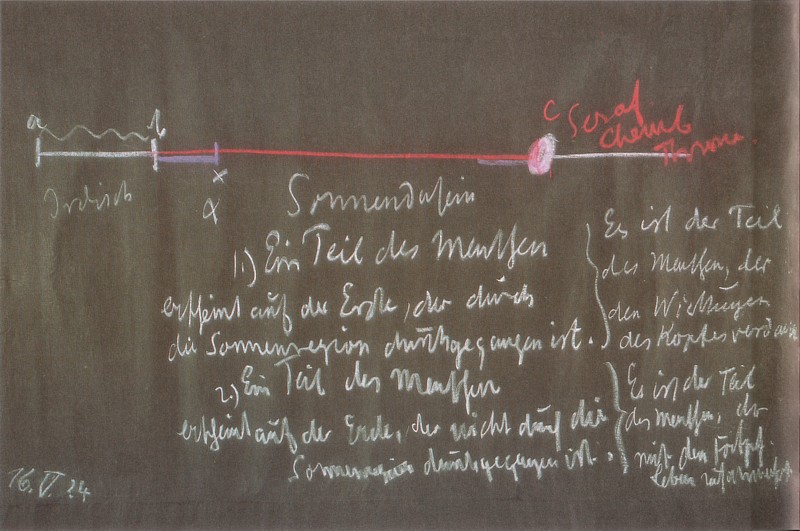 a b
c Seraf
Cherub
Throne.
x
α
Irdisch
Sonnendasein
1.) Ein Teil des Menschen
erscheint auf der Erde, der durch
die Sonnenregion durchgegangen ist.
Es ist der Teil
des Menschen, der
den Wirkungen
des Kopfes
2.) Ein Teil des Menschen
erscheint auf der Erde, der nicht durch die
Sonnenregion durchgegangen ist.
Es ist der Teil
des Menschen, der
mit dem
16. V. 24